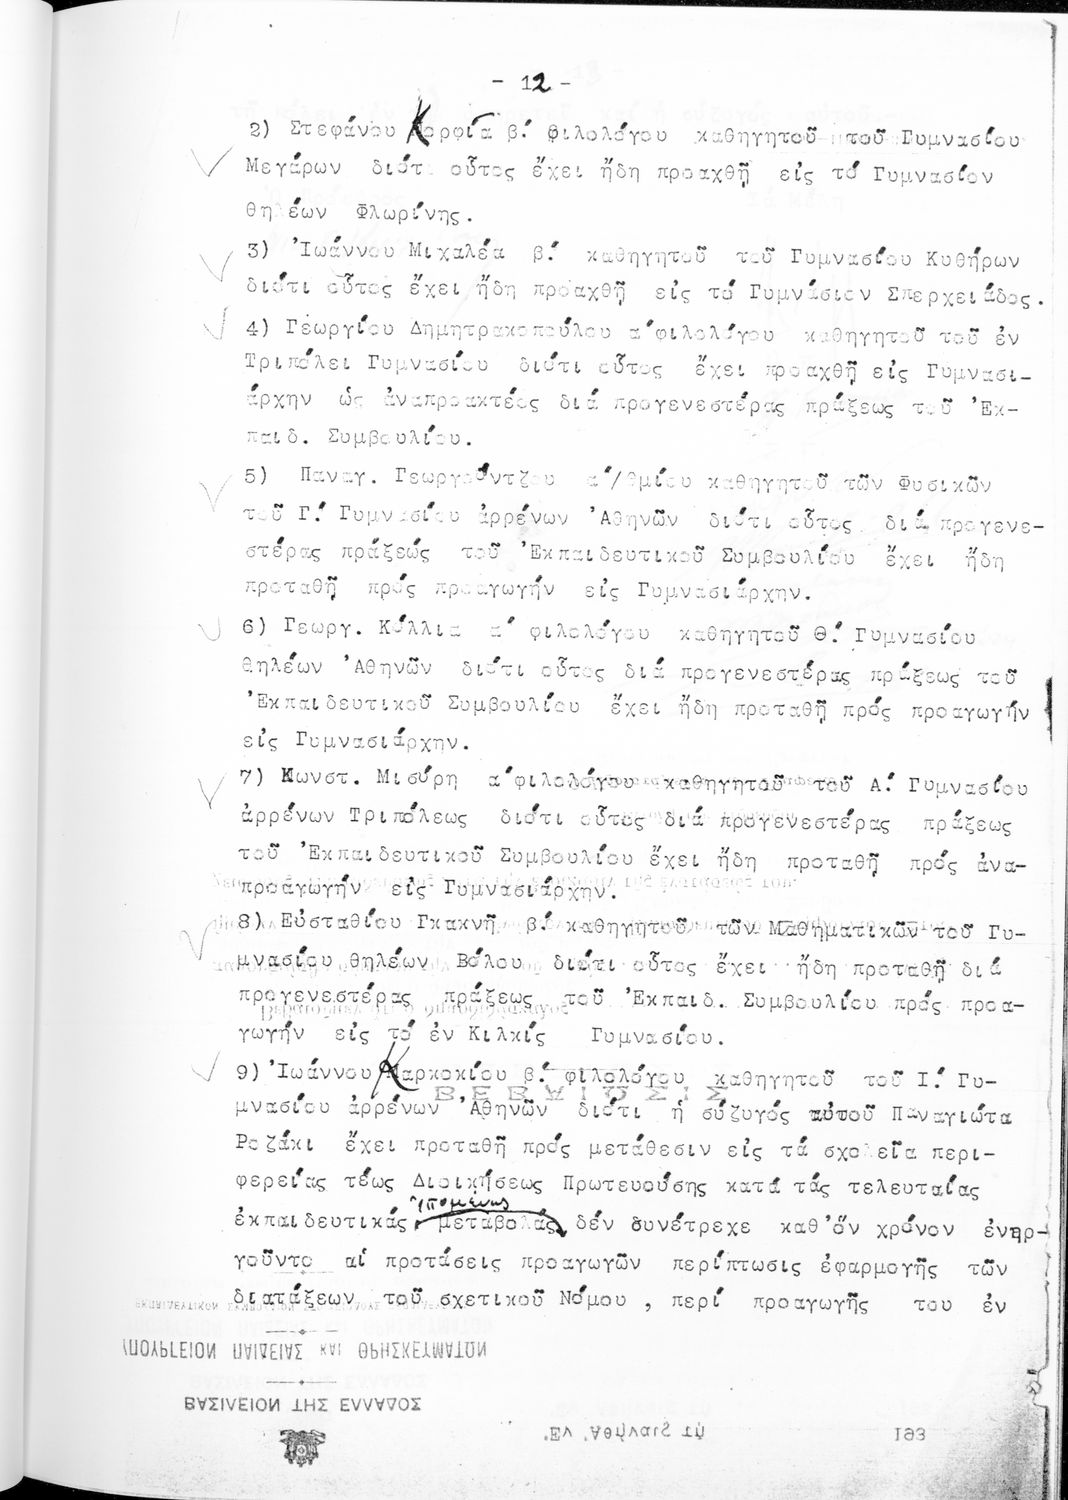 - 12 -
2) Στεφάνου Κορφία β.΄ φιλολόγου καθηγητοῦ τοῦ Γυμνασίου
Μεγάρων διότι οὗτος ἔχει ἤδη προαχθῇ εἰς τό Γυμνασίον
θηλέων Φλωρίνης.
3) Ἰωάννου Μιχαλέα β.΄ καθηγητοῦ τοῦ Γυμνασίου Κυθήρων
διότι οὗτος ἔχει ἤδη προαχθῇ εἰς τό Γυμνάσιον Σπερχειάδος.
4) Γεωργίου Δημητρακοπούλου α΄φιλολόγου καθηγητοῦ τοῦ ἐν
Τριπόλει Γυμνασίου διότι οὗτος ἔχει προαχθῇ εἰς Γυμνασι-
άρχην ὡς ἀναπροακτέος διά προγενεστέρας πράξεως τοῦ Ἐκ-
παιδ. Συμβουλίου.
5) Παναγ. Γεωργούντζου α΄/θμίου καθηγητοῦ τῶν Φυσικῶν
τοῦ Γ.΄ Γυμνασίου ἀρρένων Ἀθηνῶν διότι οὗτος διά προγενε-
στέρας πράξεώς τοῦ Ἐκπαιδευτικοῦ Συμβουλίου ἔχει ἤδη
προταθῇ πρός προαγωγήν εἰς Γυμνασιάρχην.
6) Γεωργ. Κόλλια α΄ φιλολόγου καθηγητοῦ Θ.΄ Γυμνασίου
θηλέων Ἀθηνῶν διότι οὗτος διά προγενεστέρας πράξεως τοῦ
Ἐκπαιδευτικοῦ Συμβουλίου ἔχει ἤδη προταθῇ πρός προαγωγήν
εἰς Γυμνασιάρχην.
7) Κωνστ. Μισύρη α΄φιλολόγου καθηγητοῦ τοῦ Α.΄ Γυμνασίου
ἀρρένων Τριπόλεως διότι οὗτος διά προγενεστέρας πράξεως
τοῦ Ἐκπαιδευτικοῦ Συμβουλίου ἔχει ἤδη προταθῇ πρός ἀνα-
προαγωγήν εἰς Γυμνασιάρχην.
8) Εὐσταθίου Γκακνῆ β.΄ καθηγητοῦ τῶν Μαθηματικῶν τοῦ Γυ-
μνασίου θηλέων Βόλου διότι οὗτος ἔχει ἤδη προταθῇ διά
προγενεστέρας πράξεως τοῦ Ἐκπαιδ. Συμβουλίου πρός προα-
γωγήν εἰς τό ἐν Κιλκίς Γυμνασίου.
9) Ἰωάννου Καρκοκίου β.΄ φιλολόγου καθηγητοῦ τοῦ Ι.΄ Γυ-
μνασίου ἀρρένων Ἀθηνῶν διότι ἡ σύζυγός αὐτοῦ Παναγιώτα
Ροζάκι ἔχει προταθῇ πρός μετάθεσιν εἰς τά σχολεῖα περι-
φερείας τέως Διοικήσεως Πρωτευούσης κατά τάς τελευταίας
ἑπομένως
ἐκπαιδευτικάς μεταβολάς δέν συνέτρεχε καθ'ὅν χρόνον ἐνηρ-
γοῦντο αἱ προτάσεις προαγωγῶν περίπτωσις ἐφαρμογῆς τῶν
διατάξεων τοῦ σχετικοῦ Νόμου , περί προαγωγῆς του ἐν
ΥΠΟΥΡΓΕΙΟΝ ΠΑΙΔΕΙΑΣ ΚΑΙ ΘΡΗΣΚΕΥΜΑΤΩΝ
ΒΑΣΙΛΕΙΟΝ ΤΗΣ ΕΛΛΑΔΟΣ
Ἐν Ἀθήναις τῇ 193